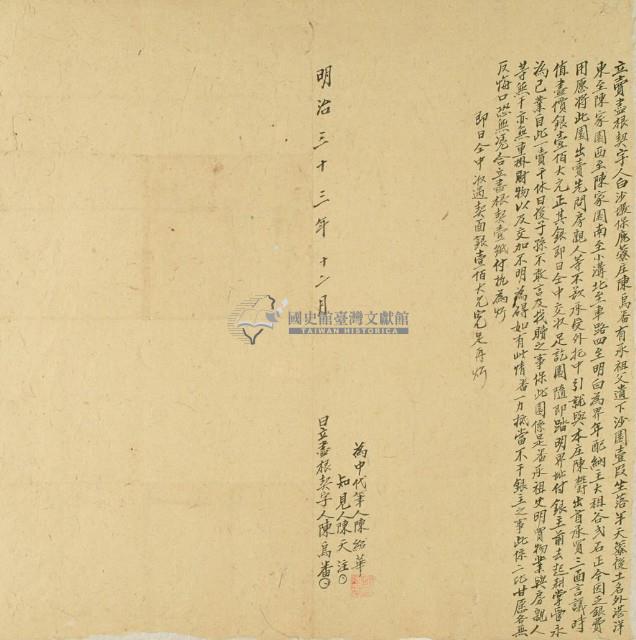 立賣盡根契字人白沙墩保鹿藔庄陳為番有承祖父遺下沙園壹段坐落羊天藔後土名外港洋
東至陳家園西至陳家園南至小溝北至車路四至明白為界年配納主大租谷弍石正今因乏銀費
用愿將此園出賣先問房親人等不欲承受外托中引就與本庄陳 出首承買三面言議時
值盡價銀壹佰大元正其銀即日仝中交收足訖園隨即踏明界址付銀主前去起耕掌管永
為己業自此一賣千休日後子孫不敢言及找贖之事保此園係是番承祖父明買物業與房親人
等無干亦無重掛財物以及交加不明為碍如有此情番一力抵當不干銀主之事此係二比甘愿各無
反悔口恐無憑合立盡根契壹紙付執為炤
即日仝中收過契面銀壹佰大元完足再炤
為中代筆人陳紹華
知見人陳天注
明治三十三年十二月 日立盡根契字人陳為番
國史館臺灣文獻館
TAIWAN HISTORICA